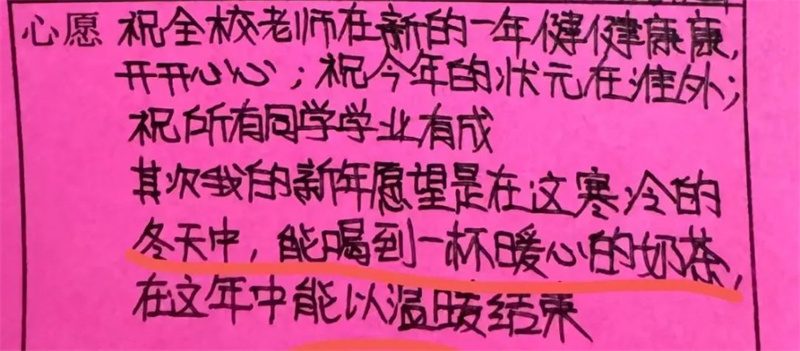 心愿 祝全校老师在新的一年健健康康,
开开心心;祝今年的状元在淮外;
祝所有同学学业有成
其次我的新年愿望是在这寒冷的
冬天中,能喝到一杯暖心的奶茶,
在这年中能以温暖结束